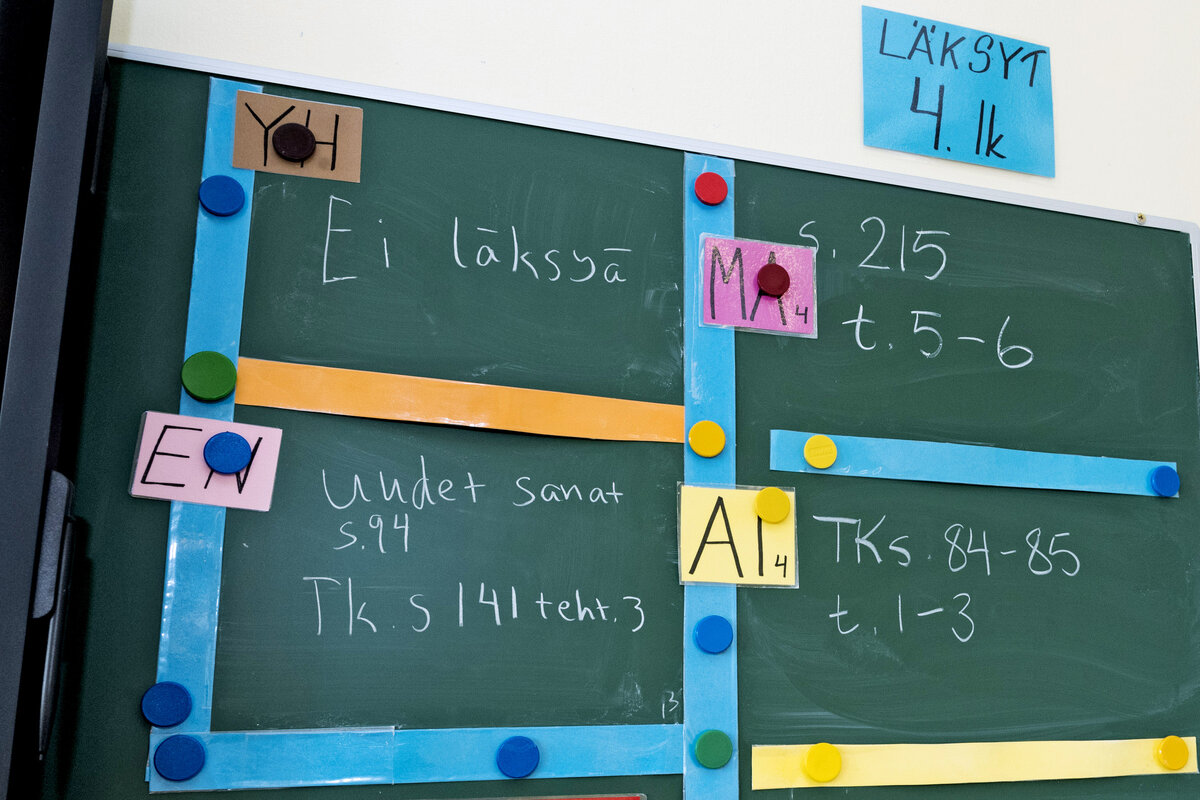 LÄKSYT
4. lk
YH
Ei läksyä
MA 4
s. 215
t. 5-6
EN
Uudet sanat
s.94
Tk. s 141 teht. 3
AI 4
TKs. 84-85
t. 1-3